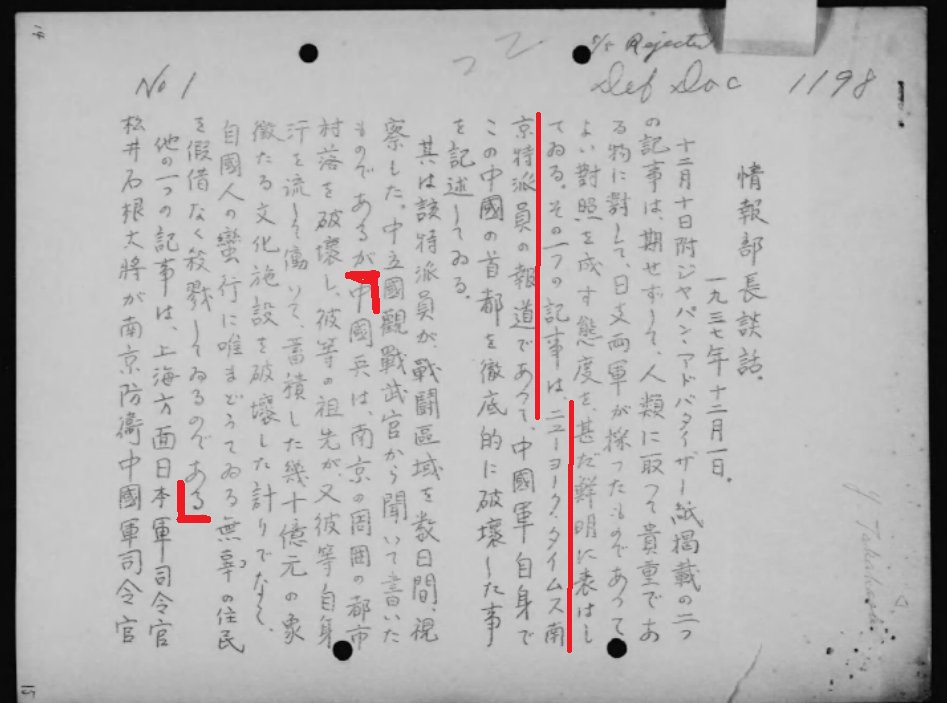 5/5 Rejected
Def Doc 1198
No 1
情報部長談話.
一九三七年十二月一日.
十二月十日附ジヤパン・アドバタイザー紙掲載の二つ
の記事は、期せずして、人類に取つて貴重であ
る物に對して、日支両軍が採つたものであつて
よい對照を成す態度を、甚だ鮮明に表はし
てゐる。その一つの記事は、ニューヨーク・タイムス南
京特派員の報道であつて、中國軍自身で
この中國の首都を徹底的に破壊した事
を記述してゐる。
其は該特派員が、戰闘區域を数日間、視
察した。中立國觀戰武官から聞いて書いた
ものであるが中國兵は、南京の周囲の都市
村落を破壊し、彼等の祖先が、又彼等自身
汗を流して働いて、蓄積した幾十億元の象
徴たる文化施設を破壊した計りでなく、
自國人の蠻行に唯まどうてゐる無辜の住民
を假借なく殺戮してゐるのである
他の一つの記事は、上海方面日本軍司令官
松井石根大將が南京防衛中國軍司令官